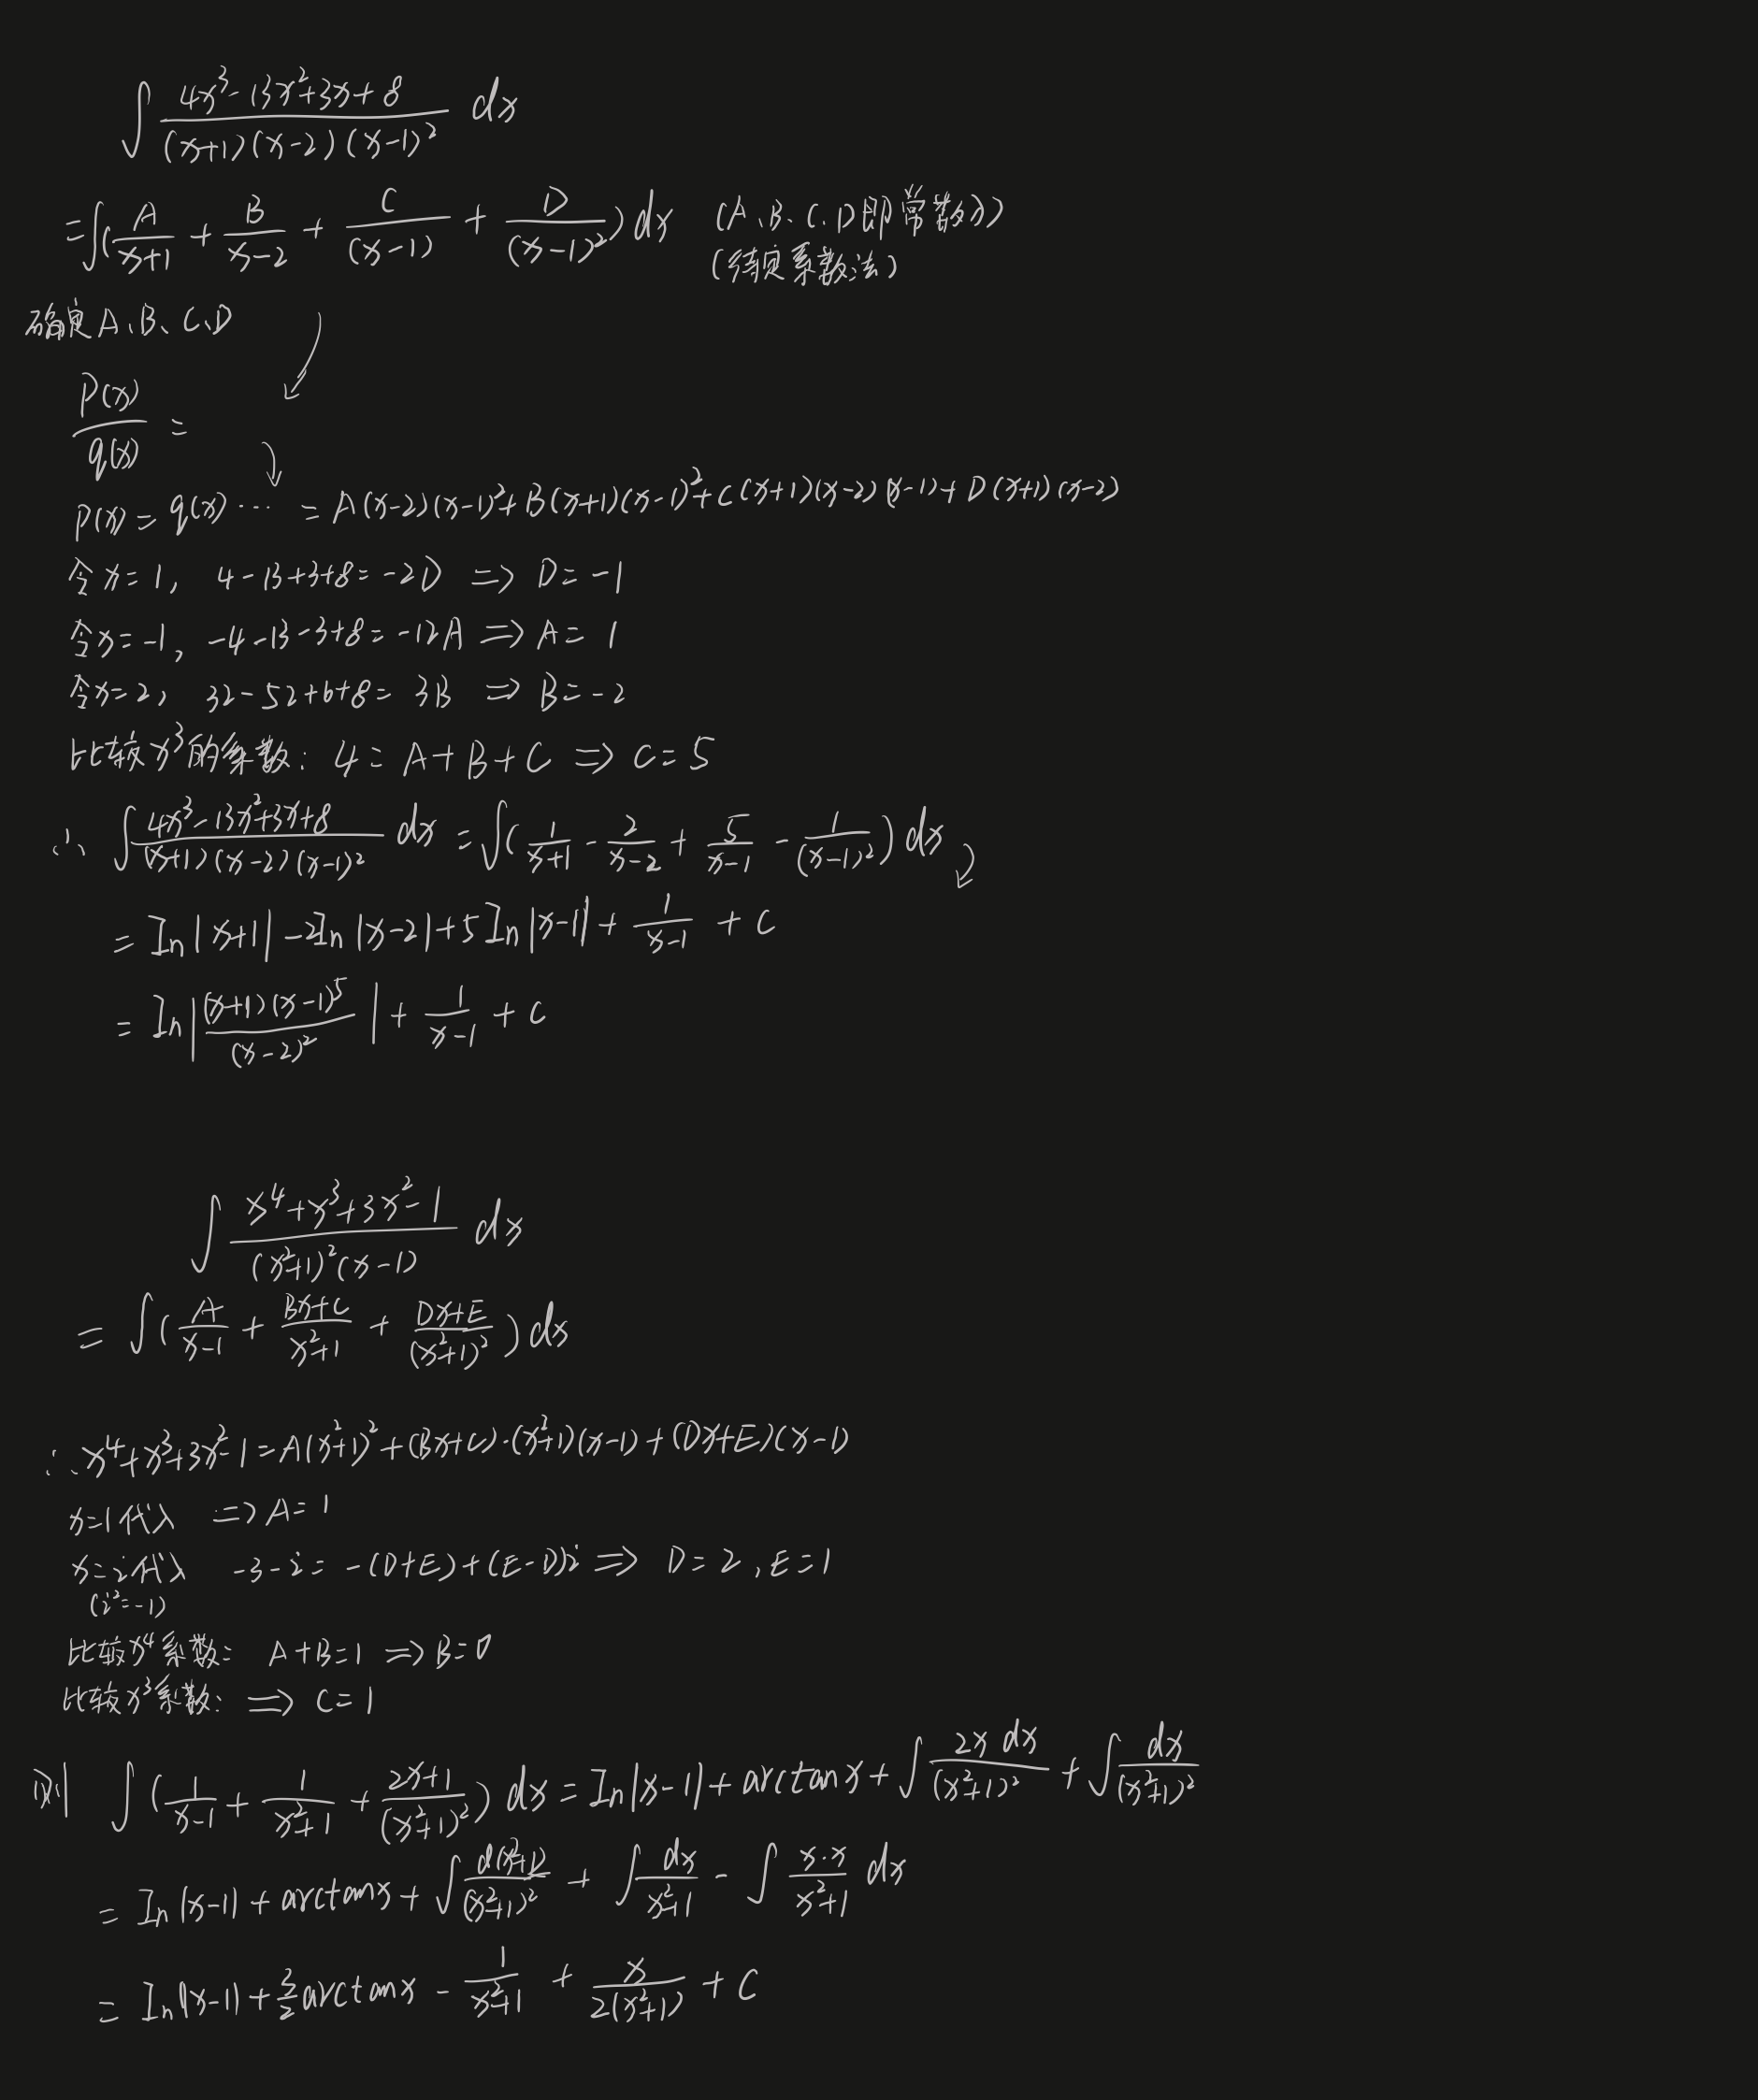 ∫ (4x³-13x²+3x+8)/((x+1)(x-2)(x-1)²) dx
=∫(A/(x+1) + B/(x-2) + C/(x-1) + D/(x-1)²)dx (A、B、C、D即常数))
(待定系数法)
确定A、B、C、D
P(x)/q(x) =
P(x) = q(x)··· = A(x-2)(x-1)²+B(x+1)(x-1)²+C(x+1)(x-2)(x-1)+D(x+1)(x-2)
令x=1, 4-13+3+8=-2D ⇒ D=-1
令x=-1, -4-13-3+8=-12A ⇒ A=1
令x=2, 32-52+6+8=3B ⇒ B=-2
比较x³的系数: 4=A+B+C ⇒ C=5
∴ ∫ (4x³-13x²+3x+8)/((x+1)(x-2)(x-1)²) dx =∫(1/(x+1) - 2/(x-2) + 5/(x-1) - 1/(x-1)²)dx
= In|x+1|-2In|x-2|+5In|x-1|+ 1/(x-1) + C
= In|(x+1)(x-1)⁵/(x-2)²|+ 1/(x-1) + C
∫ (x⁴+x³+3x²-1)/((x²+1)²(x-1)) dx
= ∫(A/(x-1) + (Bx+C)/(x²+1) + (Dx+E)/(x²+1)²)dx
∴ x⁴+x³+3x²-1=A(x²+1)²+(Bx+C)·(x²+1)(x-1)+(Dx+E)(x-1)
x=1代入 ⇒A=1
x=i代入 -3-i=-(D+E)+(E-D)i ⇒ D=2,E=1
(i²=-1)
比较x⁴系数: A+B=1 ⇒B=0
比较x³系数: ⇒ C=1
则 ∫(1/(x-1) + 1/(x²+1) + (2x+1)/(x²+1)²) dx = In|x-1|+arctanx+∫ 2x dx/(x²+1)² + ∫ dx/(x²+1)²
= In|x-1|+arctanx+∫ d(x²+1)/(x²+1)² + ∫ dx/(x²+1) - ∫ x·x/(x²+1) dx
= In|x-1|+ 3/2 arctanx - 1/(x²+1) + x/(2(x²+1)) + C